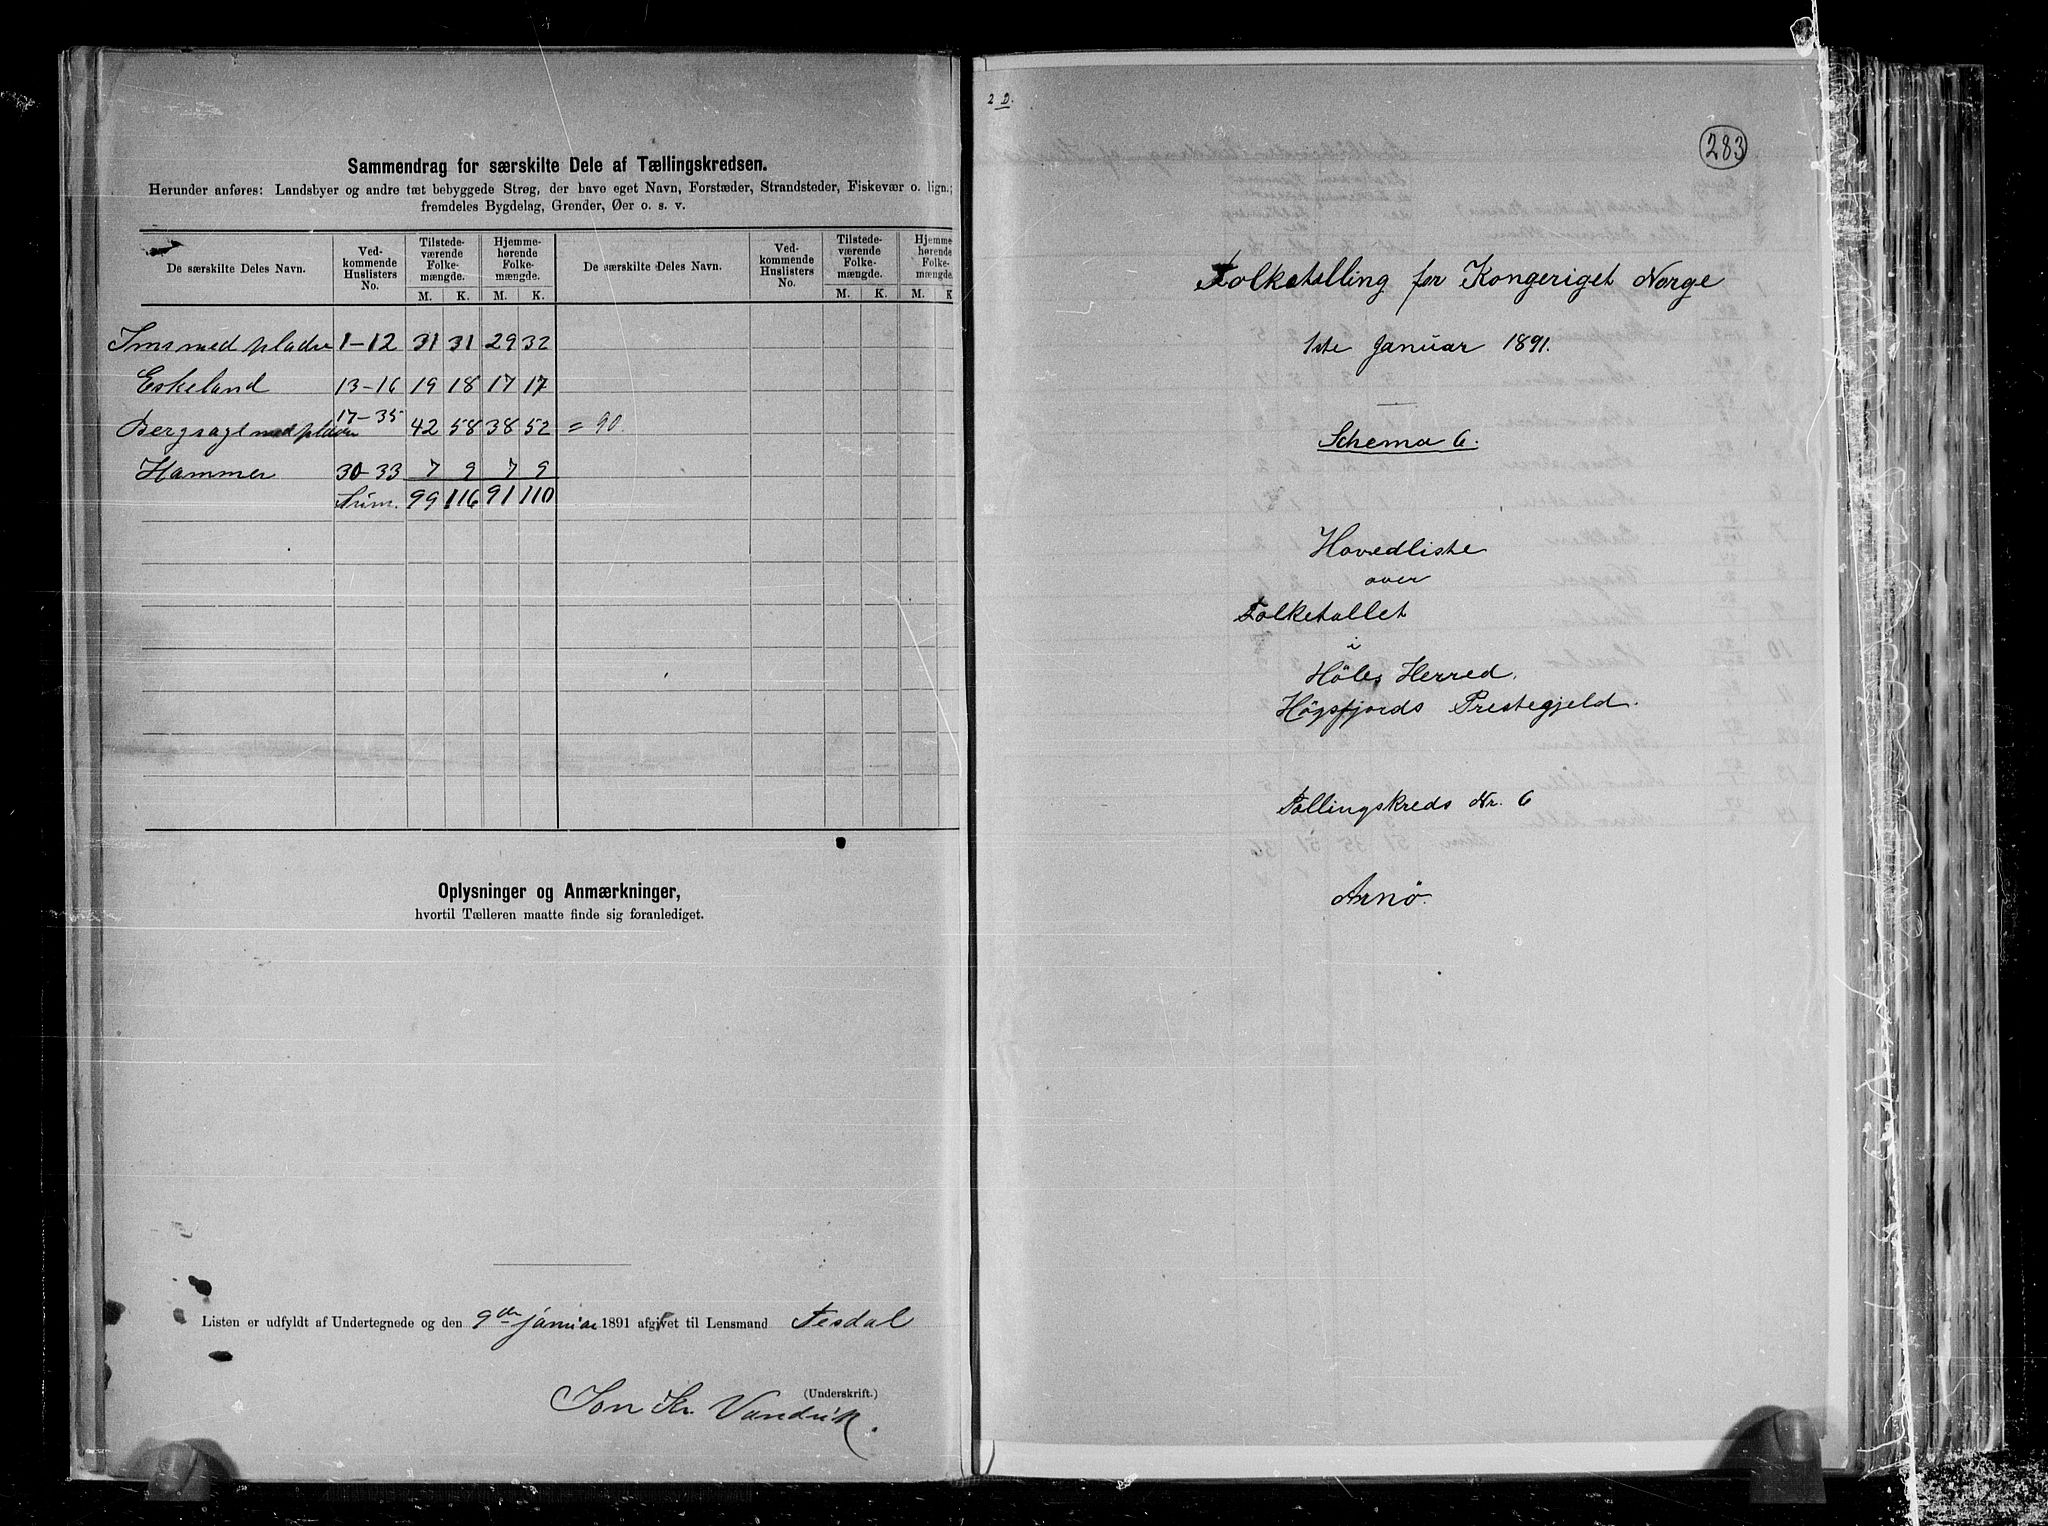 Sammendrag for særskilte Dele af Tællingskredsen.
Herunder anføres: Landsbyer og andre tæt bebyggede Strøg, der have eget Navn, Forstæder, Strandsteder, Fiskevær o. lign.;
fremdeles Bygdelag, Grender, Øer o. s. v.
De særskilte Deles Navn. Vedkommende Huslisters No. Tilstedeværende Folkemængde. Hjemmehørende Folkemængde. De særskilte Deles Navn. Vedkommende Huslisters No. Tilstedeværende Folkemængde. Hjemmehørende Folkemængde.
M. K. M. K. M. K. M. K
Ims med pladse 1-12 31 31 29 32
Eskeland 13-16 19 18 17 17
Bergsagl med pladse 17-35 42 58 38 52 = 90.
Hammer 30-33 7 9 7 9
Sum. 99 116 91 110
Oplysninger og Anmærkninger,
hvortil Tælleren maatte finde sig foranlediget.
Listen er udfyldt af Undertegnede og den 9de januar 1891 afgivet til Lensmand Tesdal
(Underskrift.)
Jon Kr. Vandvik.
2 D.
283
Folketælling for Kongeriget Norge
1ste Januar 1891.
Schema 6.
Hovedliste
over
Folketallet
i
Höles Herred.
Högsfjords Prestegjeld.
Tællingskreds Nr. 6
Arnö.